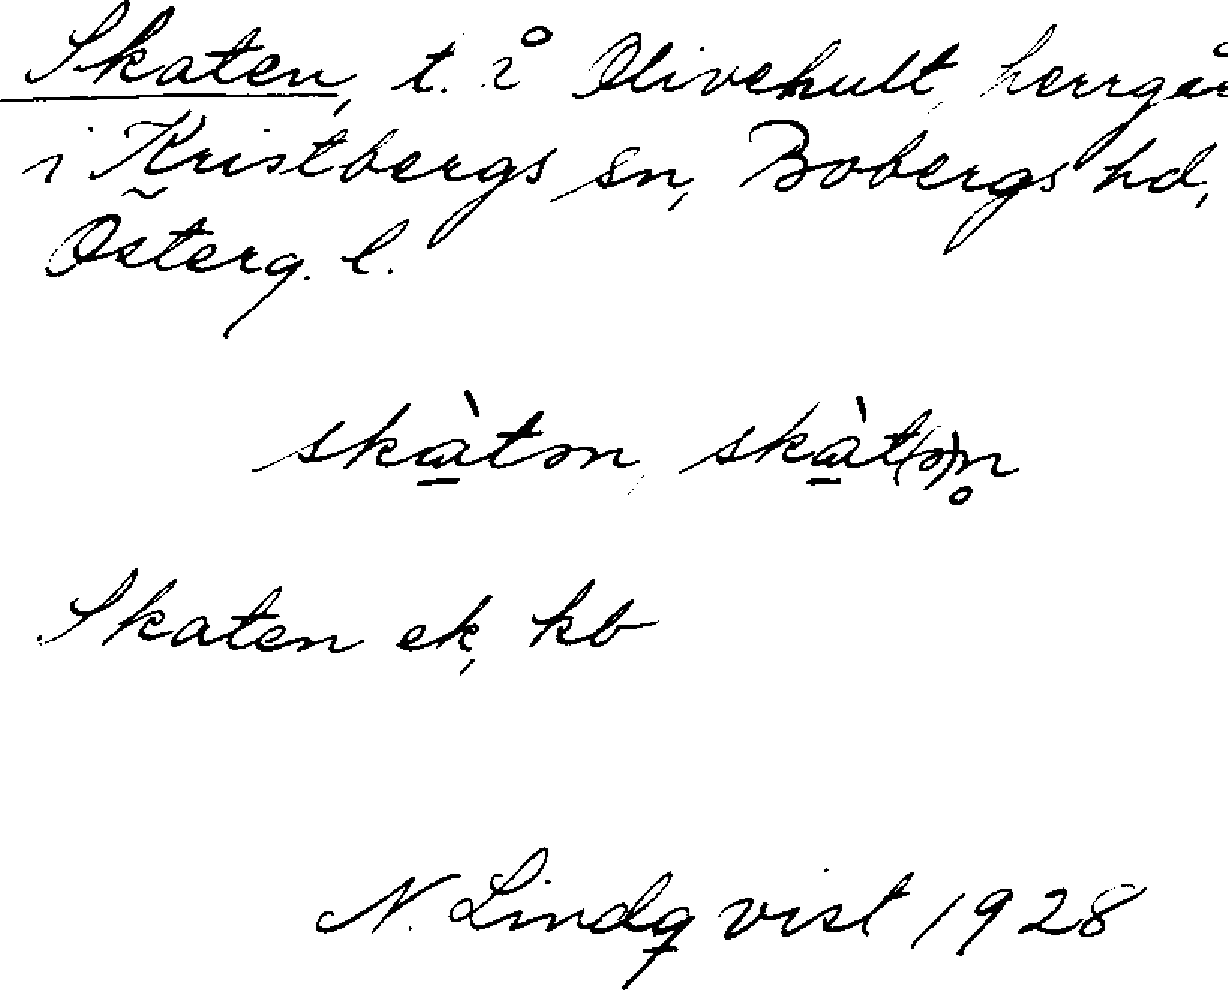 Skaten, t. å Olivehult, herrgå
i Kristbergs sn, Bobergs hd,
Österg. l.
skàtən, skàt(ə)n̥
Skaten ek, kb
N. Lindqvist 1928